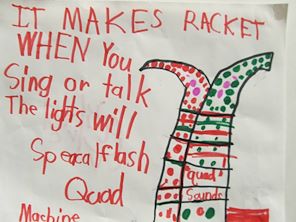 IT MAKES RACKET
WHEN YOU
Sing or talk
The lights will
Specalflash
Quad
Machine
quad
Sounds